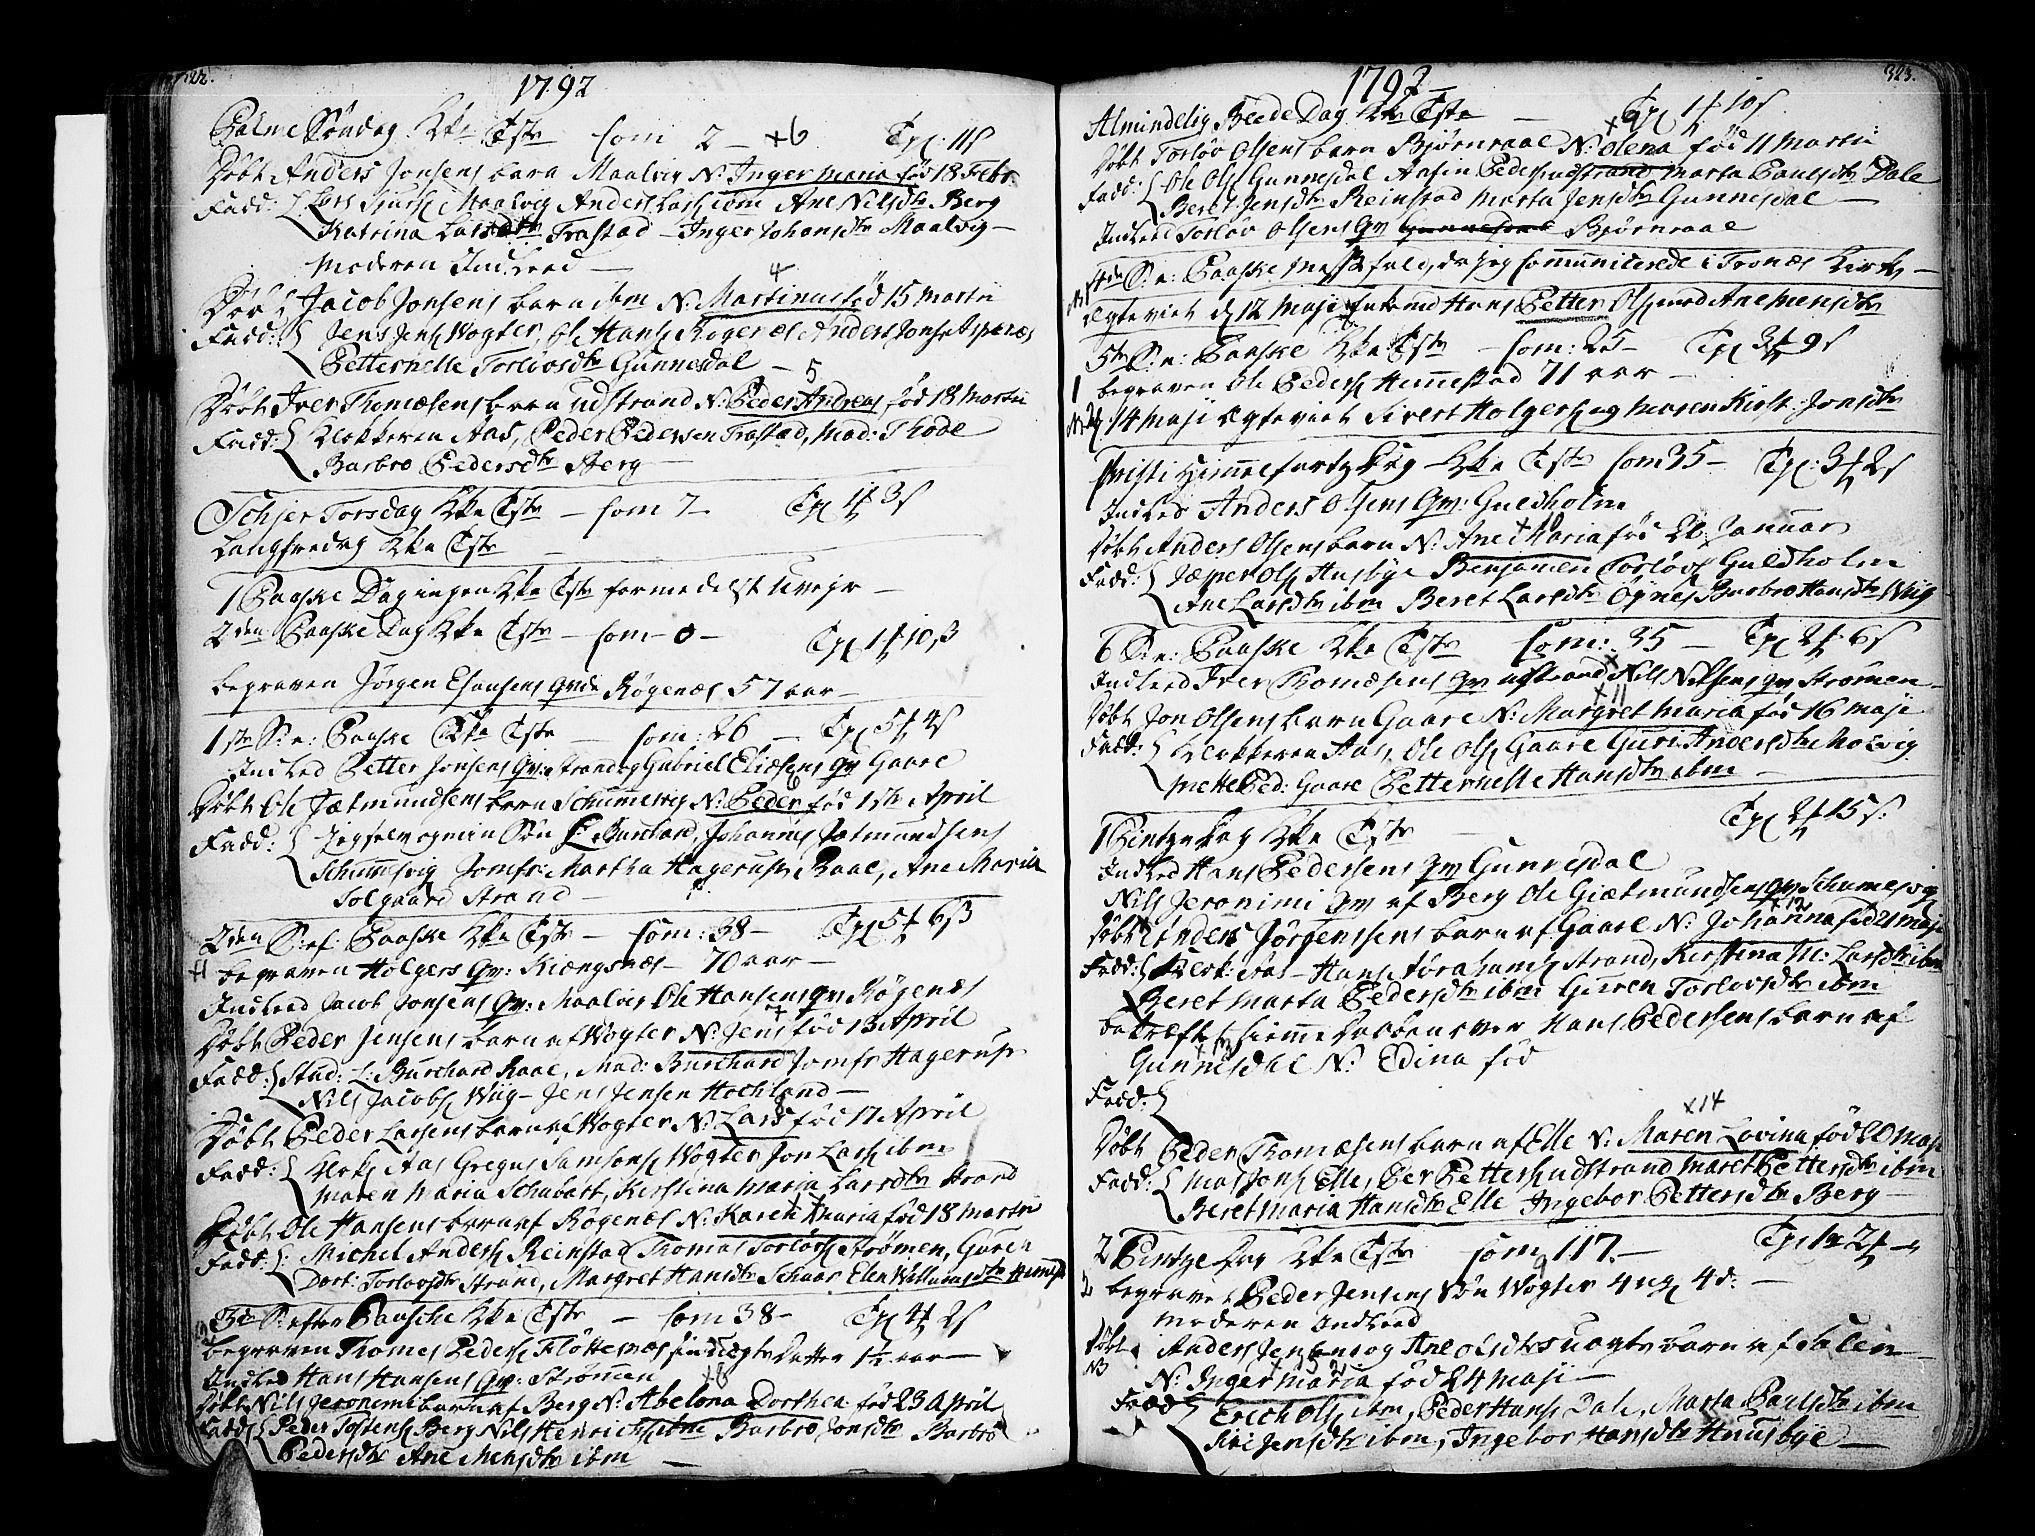 322.
1792
Palme Søndag Kke Tste Com 2 +6 Tpl 11 s
Døbt Anders Jonsens barn Maalvig N: Inger Maria fød 18 Febr:
Fadd: Lars Maalvig Anders Larss ibm Ane Nilsdtr Berg
Katrina Larsdtr Trastad - Inger Johansdtr Maalvig -
Moderen Indleed -
4
Døbt Jacob Jonsens barn ibm N: Martinus fød 15 Martii
Fadd: Jens Jens Wogter, Ole Hans Røgenæs Anders Jons Aspenæs
Petternelle Torløvsdtr Gunnesdal -
5
Døbt Iver Thomæsens barn udstrand N: Peder Andreas fød 18 Martii
Fadd: Klokkeren Aas, Peder Pedersen Trastad, Mad: Thode
Barbro Pedersdtr Berg -
Schjer Torsdag Kke Tste - Com 7 - Tpl 1 3 s
Langfredag Kke Tste -
1 Paaske Dag ingen Kke Tste formedelst Uvejr -
2den Paaske Dag Kke Tste - Com - 0 - Tpl 1 10 ß
begraven Jørgen Esausens Qvde Røgenæs 57 aar -
1ste S: e: Paaske Kke Tste - Com: 26 - Tpl 5 4 s
Indleed Petter Jonsens Qv: Strand og Gabriel Eliæsens Qv Gaare
6
Døbt Ole Jætmundsens barn Schumesvig N: Peder fød 1ste April
Fadd: Jeg selv og min Søn L: Burchard, Johannes Jætmundsens
Schumesvig Jomfr: Martha Hagerup Raae, Ane Maria
Solgaard Strand -
2den S: ef: Paaske Kke Tste - Com: 38 - Tpl 5 6 ß
+1 begraven Holgers Qv: Kiængsnæs - 70 aar -
Indleed Jacob Jonsens Qv: Maalvig Ole Hansens Qv Røgenæs
7
Døbt Peder Jensens barn af Wogter N: Jens fød 13 April
Fadd: Stud: L: Burchard Raae, Mad: Burchard Jomfr Hagerup
Nils Jacobs Wiig - Jens Jensen Hochland -
8
Døbt Peder Larsens barn af Wogter N: Lars fød 17 April
Fadd: Klok: Aas Gregus Samsons Wogter Jon Lars ibm
Maren Maria Schubart, Kirstina Maria Larsdtr Strand
Døbt Ole Hansens barn af Røgenæs N: Karen Maria fød 18 Martii
Fadd: Michel Anders Reinstad Thomas Torløvs Strømen, Guren
Dort: Torlovsdtr Strand, Margret Hansdtr Schaar Elen Willumsdtr
3de S: efter Paasche Kke Tste - Com 38 - Tpl 4 2 s
begraven Thomes Peders Fløttenæs Datter 1½ aar -
Indleed Hans Hansens Qv: Strømen
Døbt Nils Jeronimi barn af Berg N: Abelona Dorthea fød 23 April
Fadd: Peder Tostens Berg Nils Henrichs ibm Barbro Jonsdtr Barbro
Pedersdtr Ane Mensdtr ibm -
323.
1792
Almindelig Beede Dag Kke Tste - Tpl 1 10 s
Døbt Torløv Olsens barn Bjørnraae N: Olena fød 11 Martii
Fadd: Ole Ols Gunnesdal Aasin Peders udstrand Marta Paulsdtr Dale
Beret Jensdtr Reinstad Marta Jensdtr Gunnesdal -
Indleed Torløv Olsens Qv Gunnesdal Bjørnraae
4de S: e: Paaske Messefald, da jeg Communicerede i Tronæs Kirke -
Egteviet d 12 Maji Hans Petter Ols med Ane Mensdtr
5te S: e: Paaske Kke Tste - Com: 25 - Tpl 3 9 s
1 begraven Ole Peders Hemmestad 71 aar -
14 Maji Egteviet Sivert Holgers og Maren Kirst: Jonsdtr
Christi Himmelfarts Dag - Kke Tste Com 35 - Tpl: 3 2 s
Indleed Anders Olsens Qv: Guldholm
+ 10
Døbt Anders Olsens barn N: Ane Maria fød 26 Januar
Fadd: Jæsper Ols Husbye Benjamen Torløvs Guldholm
Ane Larsdtr ibm Beret Larsdtr Øgnes Barbro Hansdtr Wiig
6 S: e: Paaske Kke Tste Com: 35 - Tpl 2 6 s
Indleed Iver Thomæsens Qv udstrand Nils Nilsens Qv Strømen -
x 11
Døbt Jon Olsens barn Gaare N: Margret Maria fød 16 Maji
Fadd: Klokkeren Aas, Ole Ols Gaare Guri Andersdtr Molvig
Mette Ped: Gaare Petternelle Hansdtr ibm -
1 Pintze Dag Kke Tste - Tpl 2 15 s:
Indleed Hans Pedersens Qv Gunnesdal
Nils Jeronimi Qv af Berg Ole Giætmundsens Qv Schumesvig
x 12
Døbt Anders Jørgensens barn af Gaare N: Johanna fød 21 Maji
Fadd: Klok: Aas - Hans Abrahams Strand, Kirstina M: Larsdtr ibm
Beret Marta Pedersdtr ibm Guren Torlovsdtr ibm
bekræft: hiemme Daaben over Hans Pedersens barn af
x 13
Gunnesdal N: Edina fød
Fadd:
x 14
Døbt Peder Thomæsens barn af Elle N: Maren Lovina fød 20 Maji
Fadd: Mas Jons Elle, Per Petters udstrand Maret Pettersdtr ibm
Beret Maria Hansdtr Elle Ingebor Pettersdtr Berg -
2 Pintze Dag Kke Tste Com 117. - Tpl 2
2 begravet Peder Jensens Søn Wogter 4 ug 4 d: -
Moderen Indleed
Døbt Anders Jensens og Ane Olsdtrs uægte barn af
NB N: Inger Maria fød 24 Maji -
Fadd: Erich Ols ibm, Peder Hans Dale, Marta Paulsdtr ibm
Siri Jensdtr ibm, Ingebor Hansdtr Husbye -